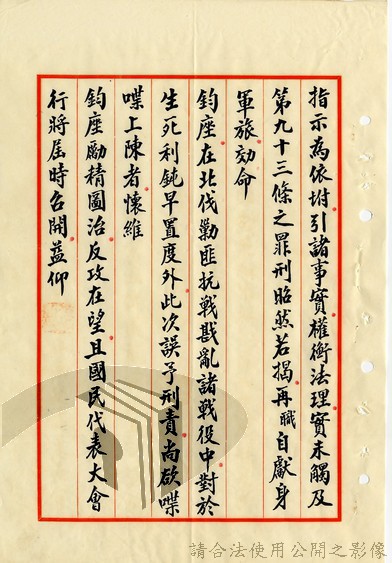 指示為依坿引諸事實權衡法理實未觸及
第九十三條之罪刑昭然若揭再職自獻身
軍旅効命
鈞座在北伐勦匪抗戰戡亂諸戰役中對於
生死利鈍早置度外此次誤予刑責尚欲喋
喋上陳者懷維
鈞座勵精圖治反攻在望且國民代表大會
行將屆時召開益仰
請合法使用公開之影像